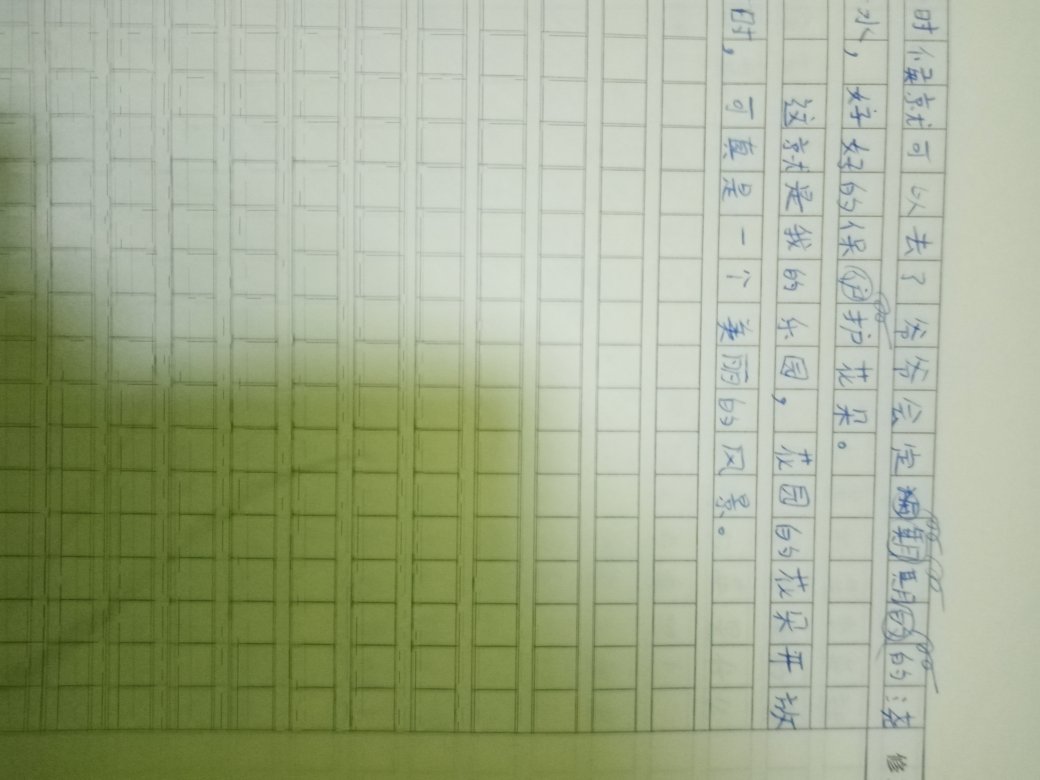 时候就可以去了爷爷会定期的浇
水，好好的保护花朵。
这就是我的乐园，花园的花朵开放
时，可真是一个美丽的风景。
修